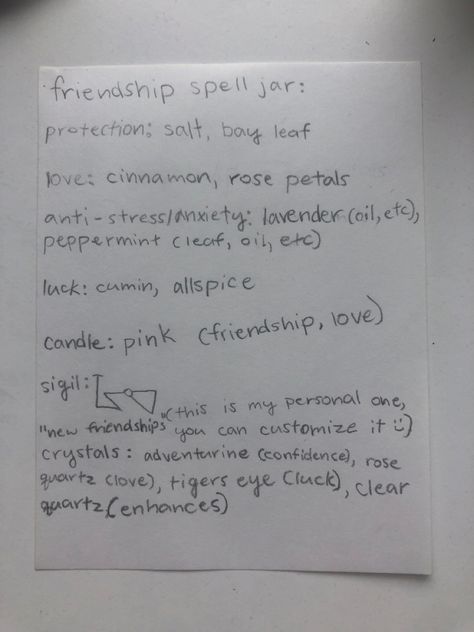 friendship spell jar:
protection: salt, bay leaf
love: cinnamon, rose petals
anti-stress/anxiety: lavender (oil, etc),
peppermint (leaf, oil, etc)
luck: cumin, allspice
candle: pink (friendship, love)
sigil:
"new friendships" (this is my personal one,
you can customize it :))
crystals: adventurine (confidence), rose
quartz (love), tigers eye (luck), clear
quartz (enhances)